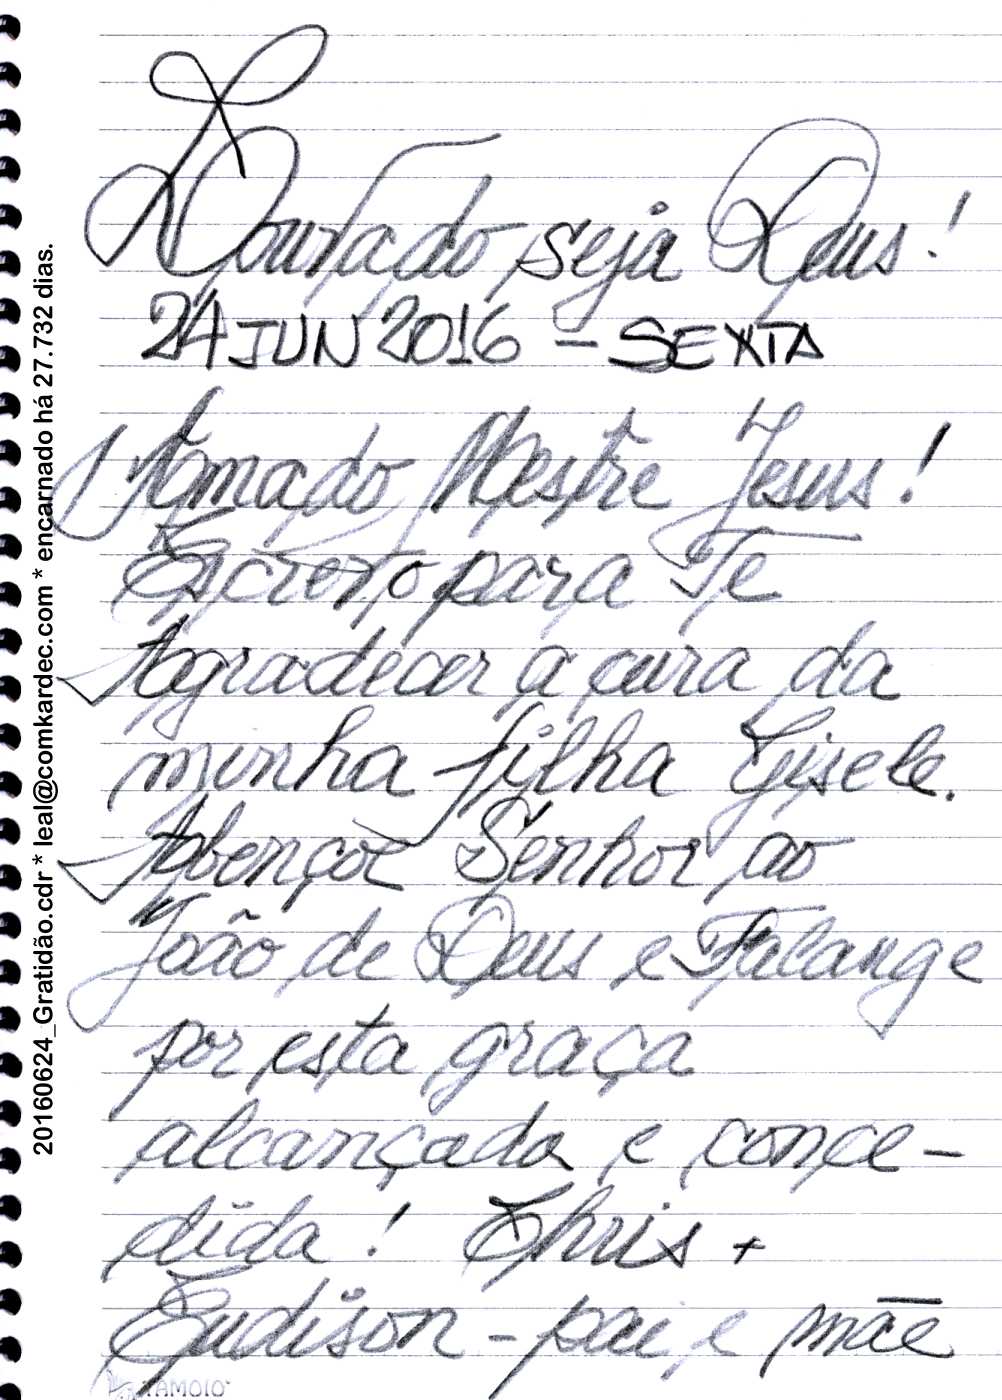 Louvado seja Deus!
24 JUN 2016 - SEXTA
Amado Mestre Jesus!
Escrevo para Te
Agradecer a cura da
minha filha Gisele.
Abençoe Senhor ao
João de Deus e Falange
por esta graça
alcançada e conce-
dida! Chris +
Eudison - pai e mãe
TAMOIO
20160624_Gratidão.cdr * leal@comkardec.com * encarnado há 27.732 dias.